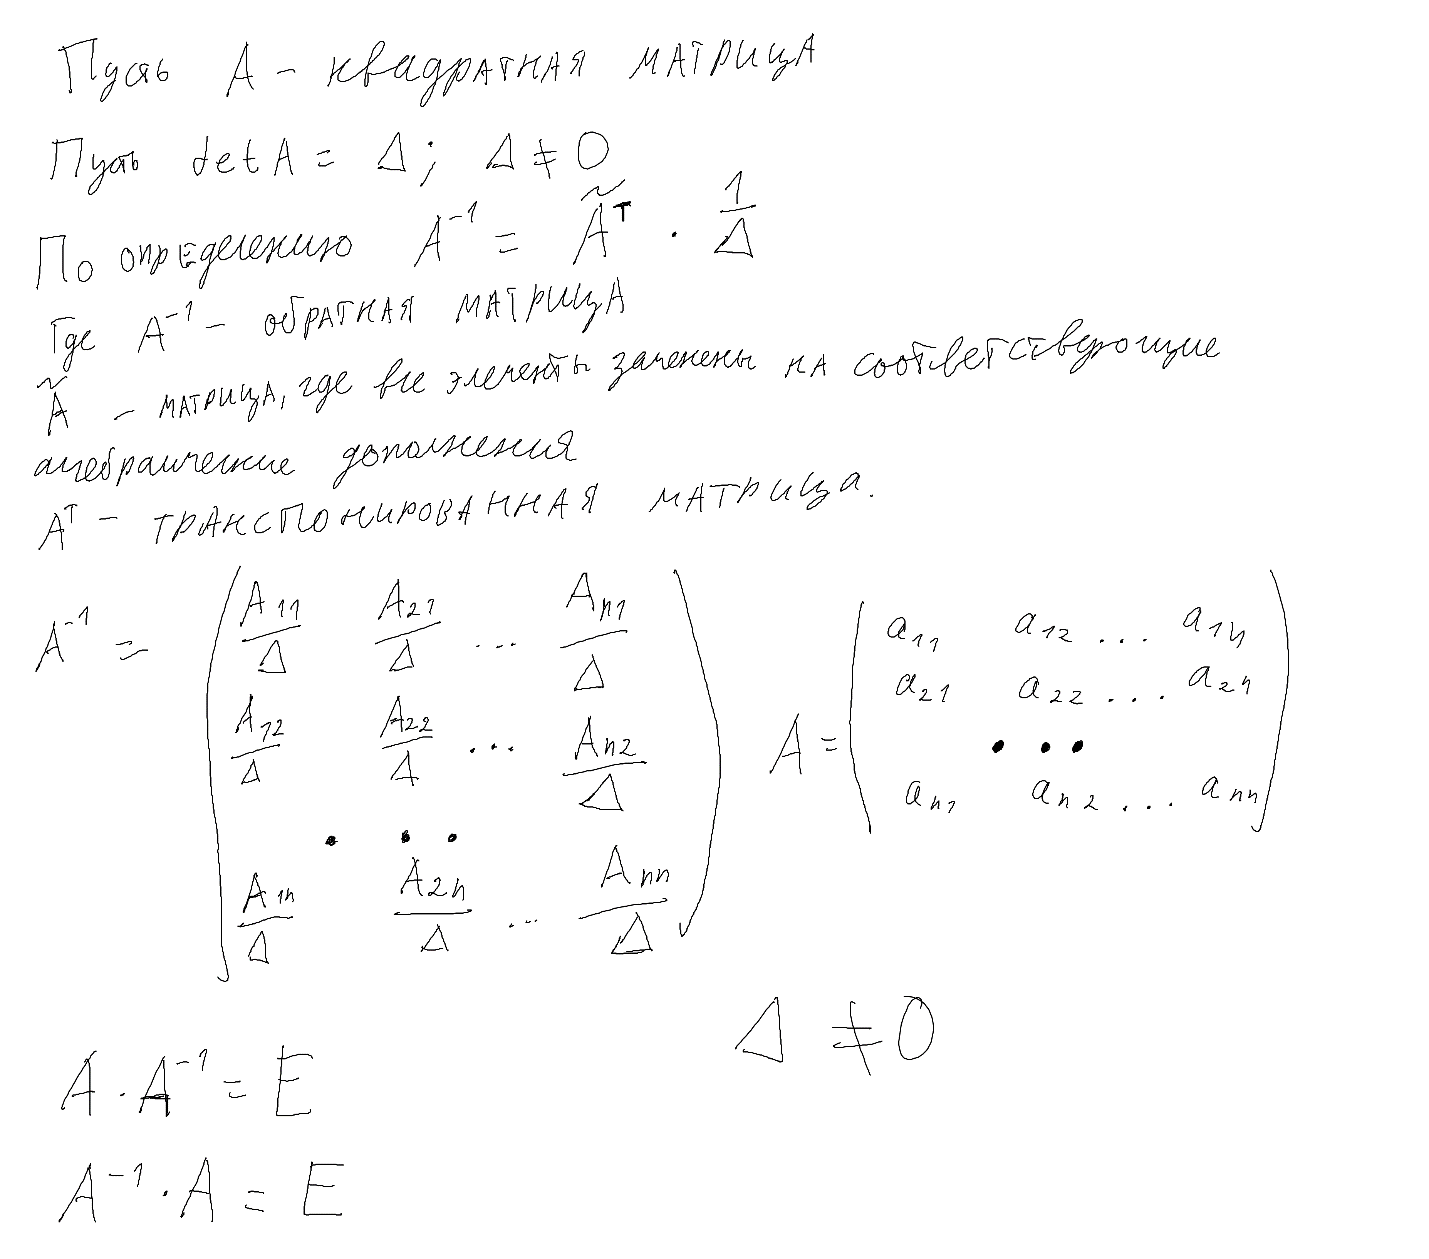 Пусть A - квадратная матрица
Пусть det A = Δ; Δ ≠ 0
По определению A⁻¹ = Ãᵀ · 1/Δ
Где A⁻¹ - обратная матрица
Ã - матрица, где все элементы заменены на соответствующие
алгебраические дополнения
Aᵀ - транспонированная матрица.
A⁻¹ = ( A₁₁/Δ A₂₁/Δ ... Aₙ₁/Δ
A₁₂/Δ A₂₂/Δ ... Aₙ₂/Δ
. . .
A₁ₙ/Δ A₂ₙ/Δ ... Aₙₙ/Δ )
A = ( a₁₁ a₁₂ ... a₁ₙ
a₂₁ a₂₂ ... a₂ₙ
. . .
aₙ₁ aₙ₂ ... aₙₙ )
Δ ≠ 0
A · A⁻¹ = E
A⁻¹ · A = E